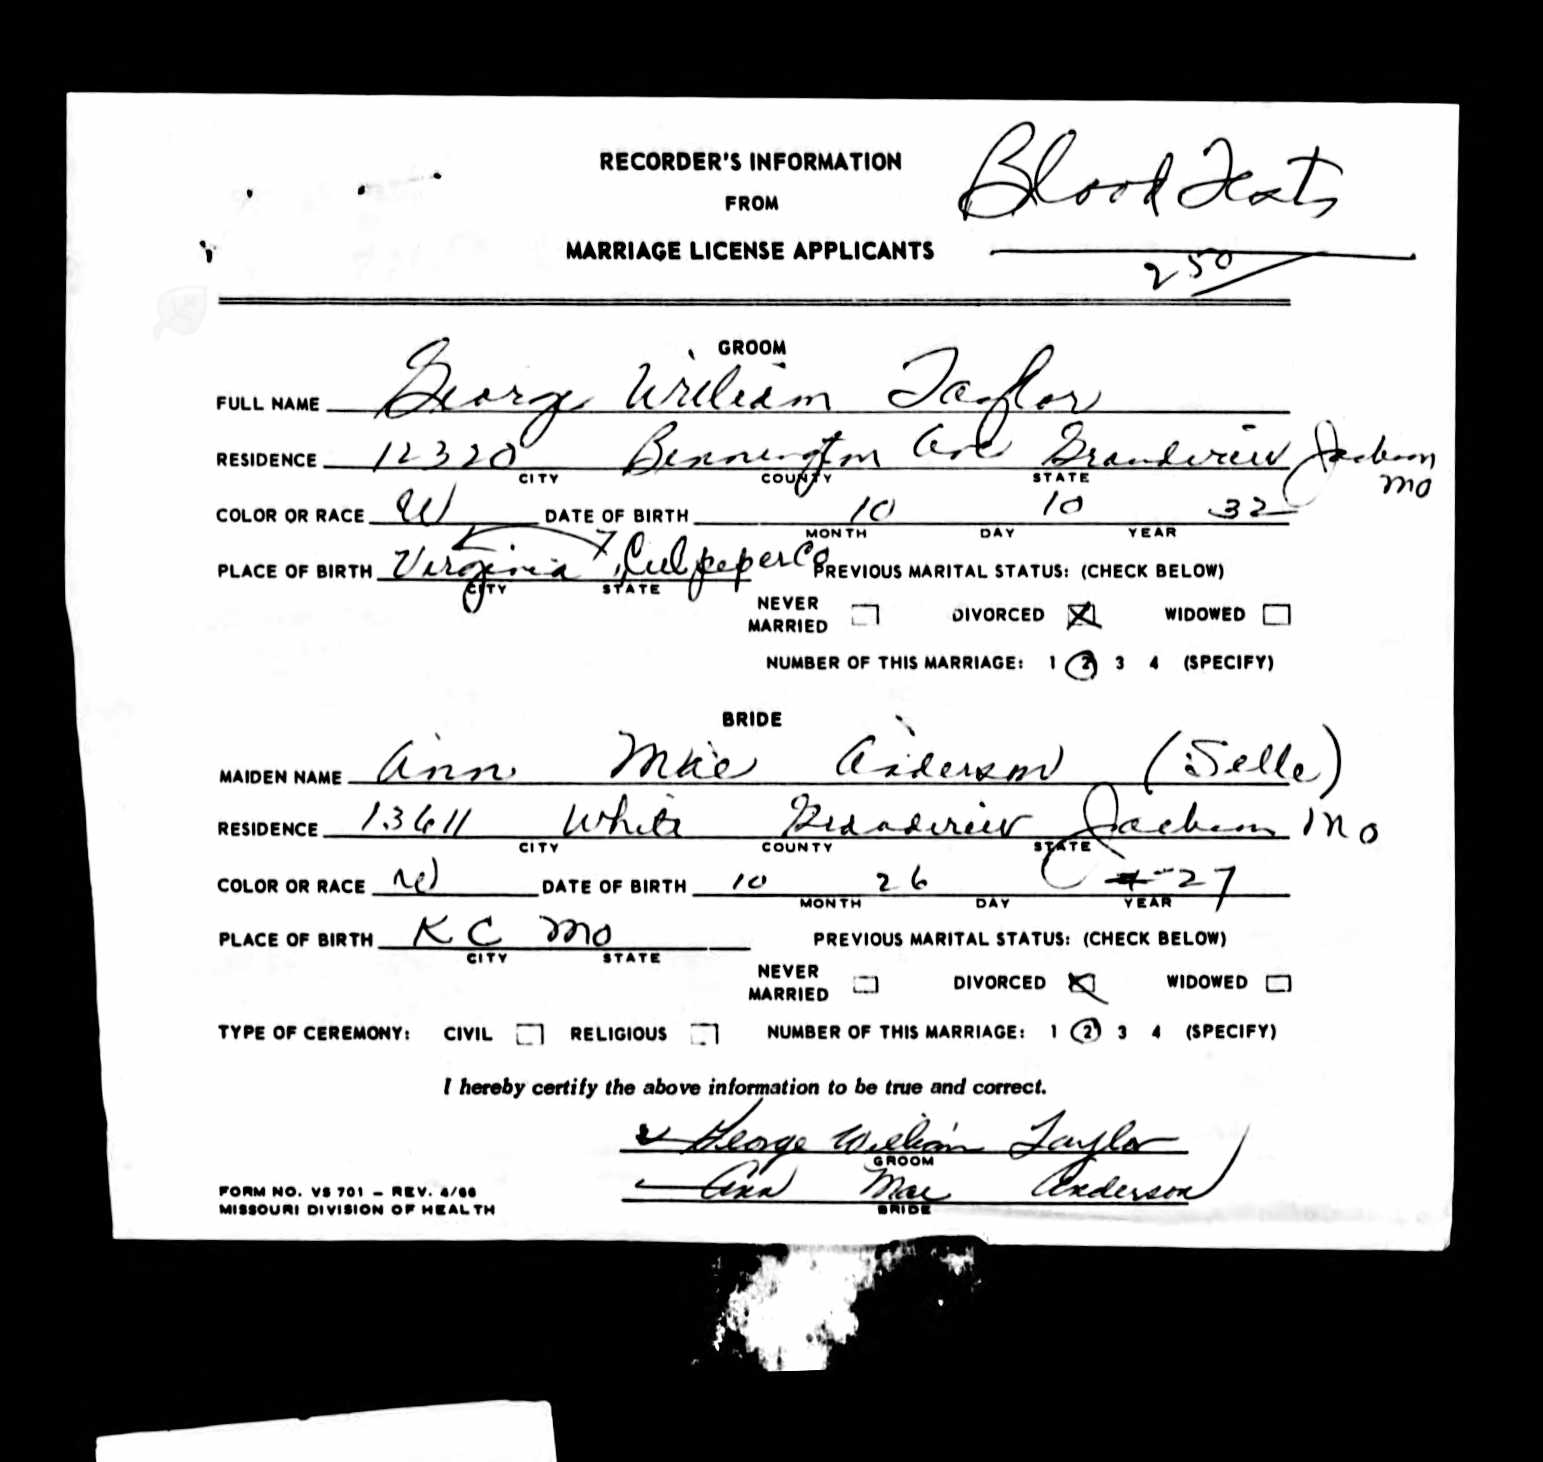 RECORDER'S INFORMATION
FROM
MARRIAGE LICENSE APPLICANTS
Blood Tests
2 50
GROOM
FULL NAME George William Taylor
RESIDENCE 12320 Bennington Ave Grandview Jackson Mo
CITY COUNTY STATE
COLOR OR RACE W DATE OF BIRTH 10 10 32
MONTH DAY YEAR
PLACE OF BIRTH Virginia, Culpeper Co PREVIOUS MARITAL STATUS: (CHECK BELOW)
CITY STATE
NEVER MARRIED DIVORCED X WIDOWED
NUMBER OF THIS MARRIAGE: 1 2 3 4 (SPECIFY)
BRIDE
MAIDEN NAME Ann Mae Anderson (Selle)
RESIDENCE 13611 White Grandview Jackson Mo
CITY COUNTY STATE
COLOR OR RACE W DATE OF BIRTH 10 26 27
MONTH DAY YEAR
PLACE OF BIRTH K C Mo PREVIOUS MARITAL STATUS: (CHECK BELOW)
CITY STATE
NEVER MARRIED DIVORCED X WIDOWED
TYPE OF CEREMONY: CIVIL RELIGIOUS NUMBER OF THIS MARRIAGE: 1 2 3 4 (SPECIFY)
I hereby certify the above information to be true and correct.
George William Taylor
GROOM
Ann Mae Anderson
BRIDE
FORM NO. VS 701 – REV. 4/66
MISSOURI DIVISION OF HEALTH